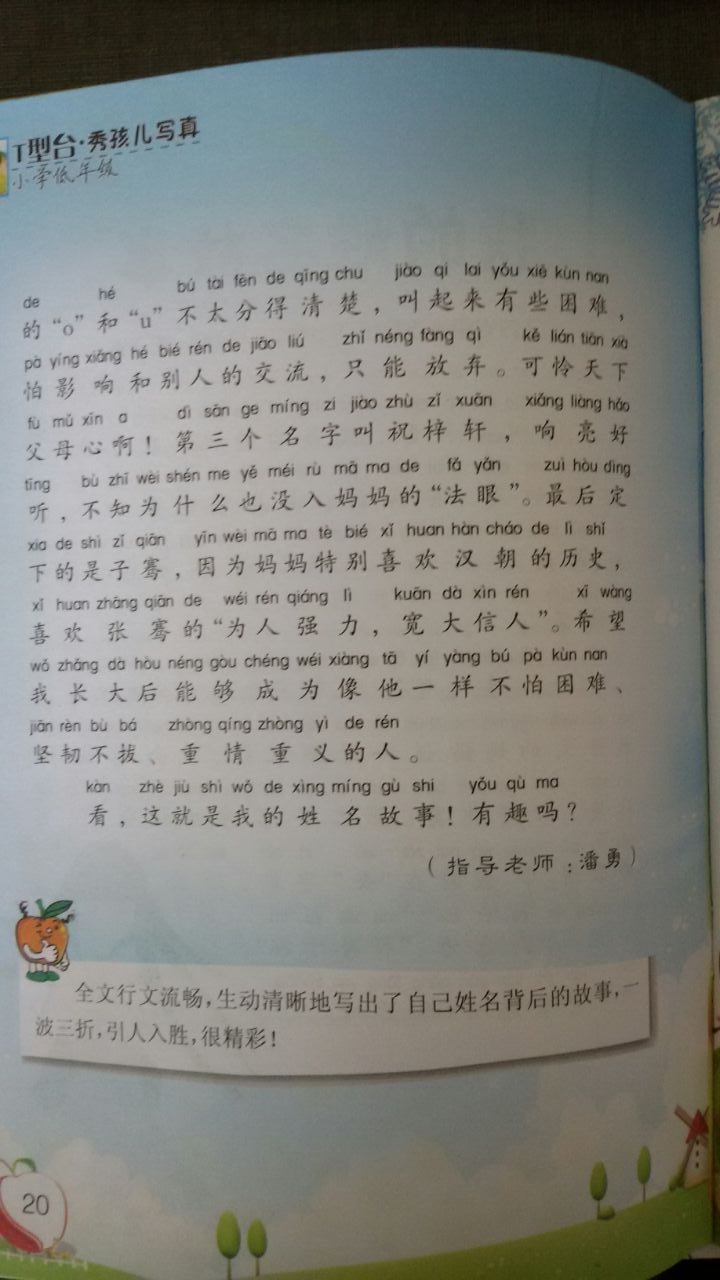 T型台·秀孩儿写真
小学低年级
de hé bú tài fēn de qīng chu jiào qi lai yǒu xiē kùn nan
的“o”和“u”不太分得清楚，叫起来有些困难，
pà yíng xiǎng hé bié rén de jiāo liú zhǐ néng fàng qì kě lián tiān xià
怕影响和别人的交流，只能放弃。可怜天下
fù mǔ xīn a dì sān ge míng zi jiào zhù zǐ xuān xiǎng liàng hǎo
父母心啊！第三个名字叫祝梓轩，响亮好
tīng bù zhī wèi shén me yě méi rù mā ma de fǎ yǎn zuì hòu dìng
听，不知为什么也没入妈妈的“法眼”。最后定
xia de shì zǐ qiān yīn wèi mā ma tè bié xǐ huan hàn cháo de lì shǐ
下的是子骞，因为妈妈特别喜欢汉朝的历史，
xǐ huan zhāng qiān de wéi rén qiáng lì kuān dà xìn rén xī wàng
喜欢张骞的“为人强力，宽大信人”。希望
wǒ zhǎng dà hòu néng gòu chéng wéi xiàng tā yí yàng bú pà kùn nan
我长大后能够成为像他一样不怕困难、
jiān rèn bù bá zhòng qíng zhòng yì de rén
坚韧不拔、重情重义的人。
kàn zhè jiù shì wǒ de xìng míng gù shi yǒu qù ma
看，这就是我的姓名故事！有趣吗？
（指导老师：潘勇）
全文行文流畅，生动清晰地写出了自己姓名背后的故事，一
波三折，引人入胜，很精彩！
20